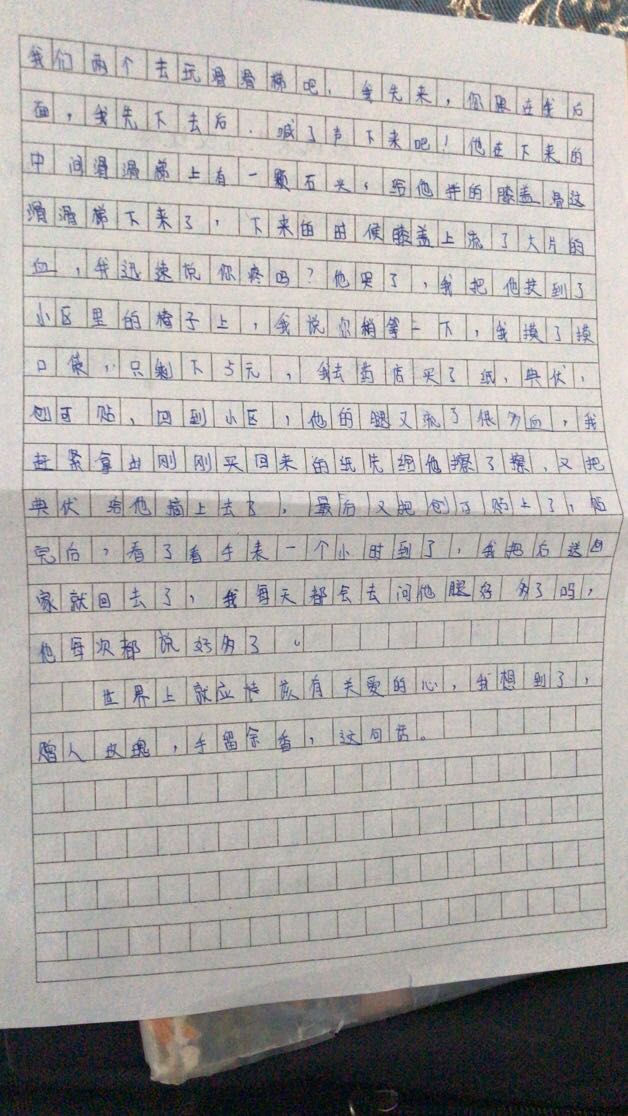 我们两个去玩滑滑梯吧，我先来，你跟在我后
面，我先下去后．喊了声下来吧！他在下来的
中间滑滑梯上有一颗石头，给他的膝盖滑这
滑滑梯下来了，下来的时候膝盖上流了大片的
血，我迅速说你疼吗？他哭了，我把他扶到了
小区里的椅子上，我说你稍等一下，我摸了摸
口袋，只剩下5元，我去药店买了纸，典伏，
创可贴，回到小区，他的腿又流了很多血，我
赶紧拿出刚刚买回来的纸先给他擦了擦，又把
典伏给他搞上去了，最后又把创可贴上了，贴
完后，看了看手表一个小时到了，我把后送回
家就回去了，我每天都会去问他腿好多了吗，
他每次都说好多了。
世界上就应该有关爱的心，我想到了，
赠人玫瑰，手留余香，这句话。